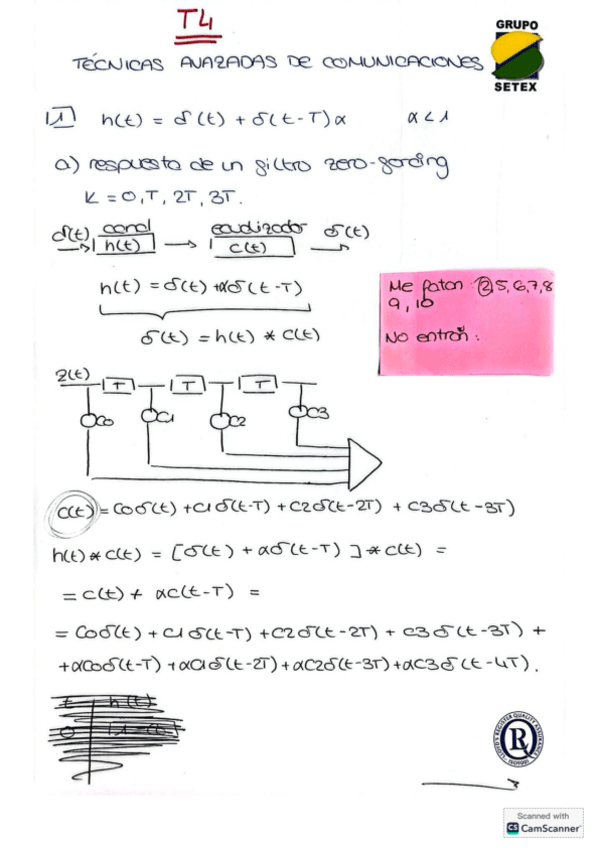 T4
GRUPO
SETEX
TÉCNICAS AVAZADAS DE COMUNICACIONES
1.1 h(t) = δ(t) + δ(t-T)α α < 1
a) respuesta de un filtro zero-forcing
K = 0, T, 2T, 3T.
δ(t) canal h(t) → ecualizador c(t) δ(t)
h(t) = δ(t) + αδ(t-T)
δ(t) = h(t) * c(t)
Me faltan: 2, 5, 6, 7, 8
9, 10
No entran:
z(t) T T T
C0 C1 C2 C3
c(t) = C0δ(t) + C1δ(t-T) + C2δ(t-2T) + C3δ(t-3T)
h(t) * c(t) = [δ(t) + αδ(t-T)] * c(t) =
= c(t) + αc(t-T) =
= C0δ(t) + C1δ(t-T) + C2δ(t-2T) + C3δ(t-3T) +
+αC0δ(t-T) + αC1δ(t-2T) + αC2δ(t-3T) + αC3δ(t-4T).
t h(t)
LLOYD'S REGISTER QUALITY ASSURANCE
ISO9001
Scanned with
CS CamScanner